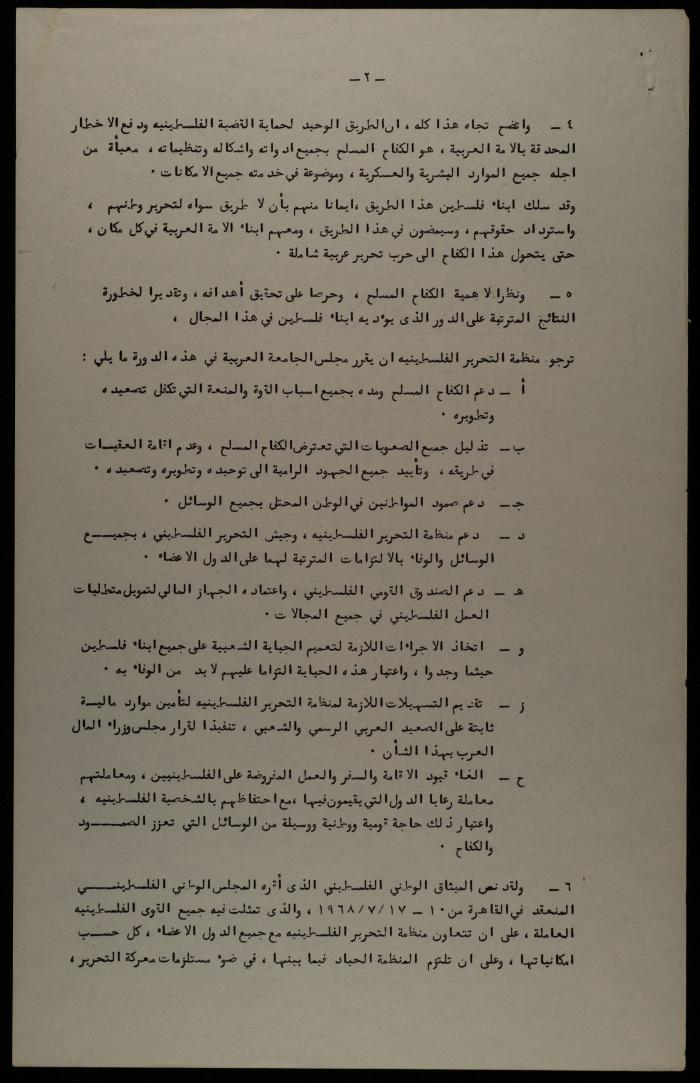 – ٢ –
٤ – واتضح تجاه هذا كله ، ان الطريق الوحيد لحماية القضية الفلسطينيه ودفع الاخطار
المحدقة بالامة العربية ، هو الكفاح المسلح بجميع ادواته واشكاله وتنظيماته ، معبأة من
اجله جميع الموارد البشرية والعسكرية ، وموضوعة في خدمته جميع الامكانات ٠
وقد سلك ابناء فلسطين هذا الطريق ،ايمانا منهم بأن لا طريق سواه لتحرير وطنهم ،
واسترداد حقوقهم ، وسيمضون في هذا الطريق ، ومعهم ابناء الامة العربية في كل مكان ،
حتى يتحول هذا الكفاح الى حرب تحرير عربية شاملة ٠
٥ – ونظرا لاهمية الكفاح المسلح ، وحرصا على تحقيق أهدافه ، وتقديرا لخطورة
النتائج المترتبة على الدور الذى يؤديه ابناء فلسطين في هذا المجال ،
ترجو منظمة التحرير الفلسطينيه ان يقرر مجلس الجامعة العربية في هذه الدورة ما يلي :
أ – دعم الكفاح المسلح ومده بجميع اسباب القوة والمنعة التي تكفل تصعيده
وتطويره ٠
ب – تذليل جميع الصعوبات التي تعترض الكفاح المسلح ، وعدم اقامة العقبـات
في طريقه ، وتأييد جميع الجهود الرامية الى توحيده وتطويره وتصعيده ٠
جـ – دعم صمود المواطنين في الوطن المحتل بجميع الوسائل ٠
د – دعم منظمة التحرير الفلسطينيه ، وجيش التحرير الفلسطيني ، بجميـــع
الوسائل والوفاء بالالتزامات المترتبة لهما على الدول الاعضاء ٠
هـ – دعم الصندوق القومي الفلسطيني ، واعتماده الجهاز المالي لتمويل متطلبات
العمل الفلسطيني في جميع المجالات ٠
و – اتخاذ الاجراءات اللازمة لتعميم الجباية الشعبية على جميع ابناء فلسطين
حيثما وجدوا ، واعتبار هذه الجباية التزاما عليهم لا بد من الوفاء به ٠
ز – تقديم التسهيلات اللازمة لمنظمة التحرير الفلسطينيه لتأمين موارد ماليـة
ثابتة على الصعيد العربي الرسمي والشعبي ، تنفيذا لقرار مجلس وزراء المال
العرب بهذا الشأن ٠
ح – الغاء قيود الاقامة والسفر والعمل المفروضة على الفلسطينيين ، ومعاملتهم
معاملة رعايا الدول التي يقيمون فيها ،مع احتفاظهم بالشخصية الفلسطينيه ،
واعتبار ذلك حاجة قومية ووطنية ووسيلة من الوسائل التي تعزز الصمـــود
والكفاح ٠
٦ – ولقد نص الميثاق الوطني الفلسطيني الذى أقره المجلس الوطني الفلسطينــي
المنعقد في القاهرة من ١٠ – ١٩٦٨/٧/١٧ ، والذى تمثلت فيه جميع القوى الفلسطينيه
العاملة ، على ان تتعاون منظمة التحرير الفلسطينيه مع جميع الدول الاعضاء ، كل حســب
امكانياتها ، وعلى ان تلتزم المنظمة الحياد فيما بينها ، في ضوء مستلزمات معركة التحرير ،